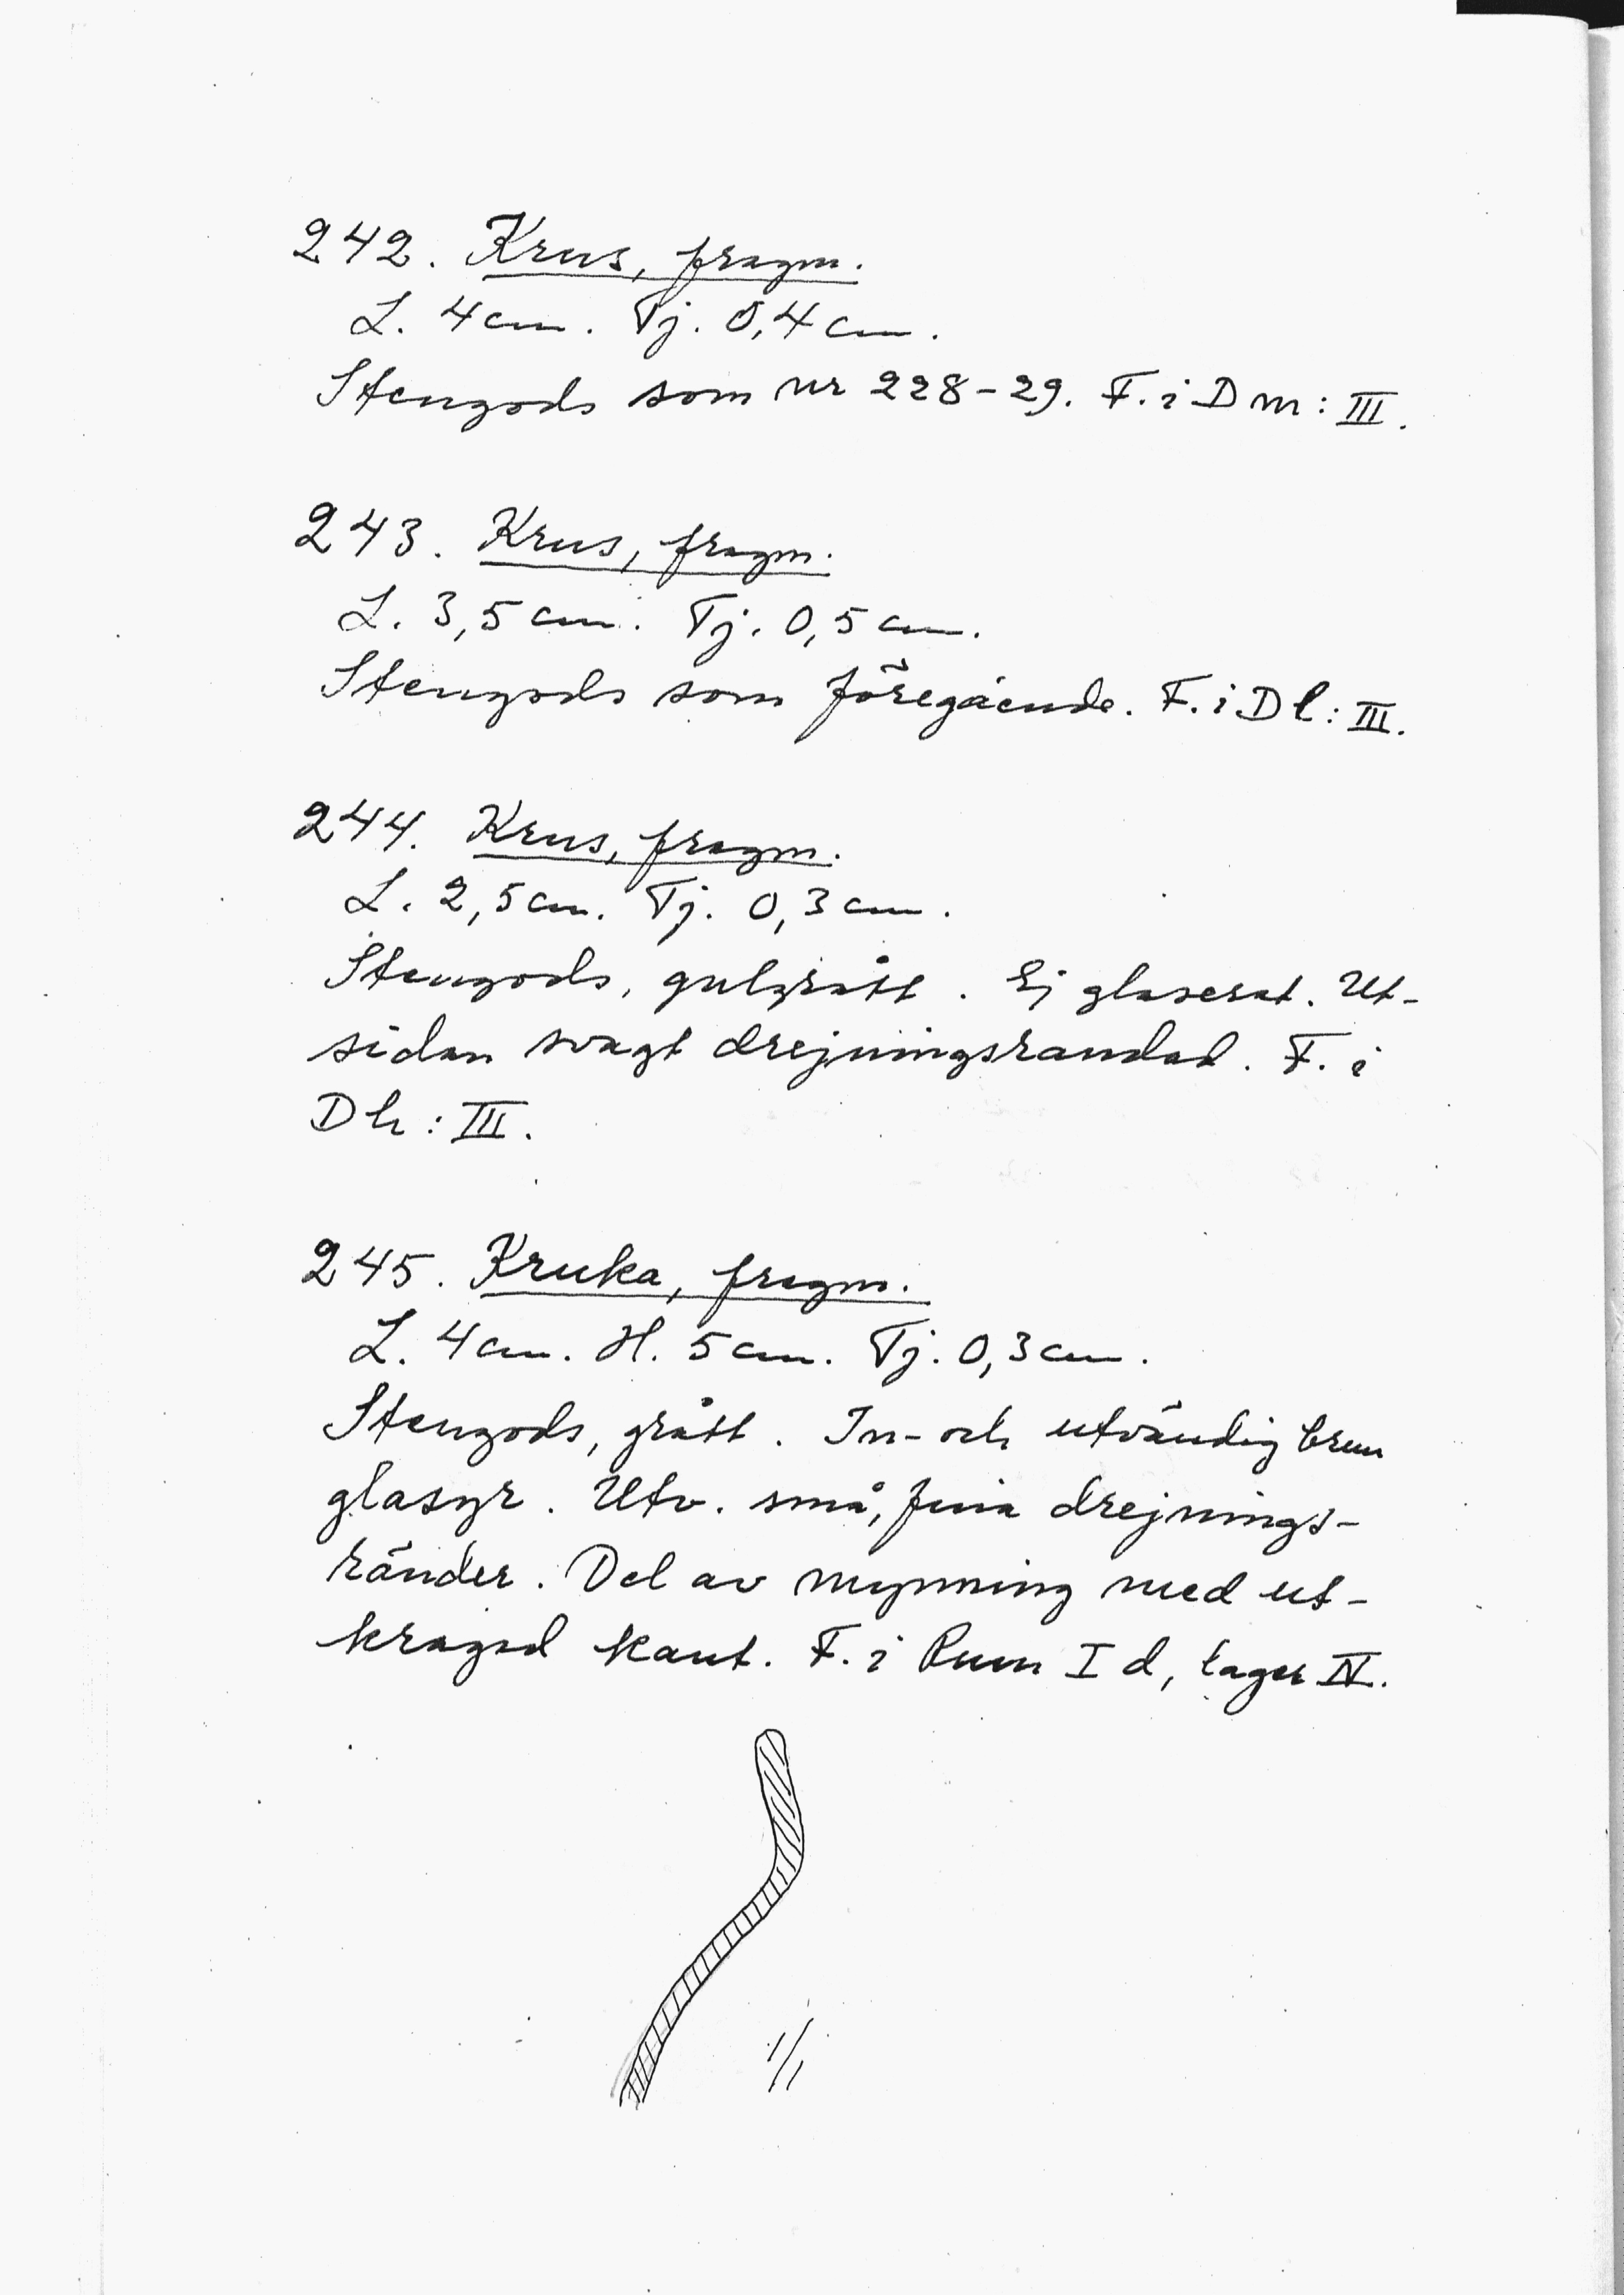 242. Krus, fragm.
L. 4 cm. Tj. 0,4 cm.
Stengods som nr 228-29. F. i Dm: III.
243. Krus, fragm.
L. 3,5 cm. Tj. 0,5 cm.
Stengods som föregående. F. i Dl: III.
244. Krus, fragm.
L. 2,5 cm. Tj. 0,3 cm.
Stengods, gulgrått. Ej glaserat. Ut-
sidan svagt drejningsrandad. F. i
Dh: III.
245. Kruka, fragm.
L. 4 cm. H. 5 cm. Tj. 0,3 cm.
Stengods, grått. In- och utvändig brun
glasyr. Utv. små, fina drejnings-
ränder. Del av mynning med ut-
kragad kant. F. i Rum I d, lager IV.
1/1